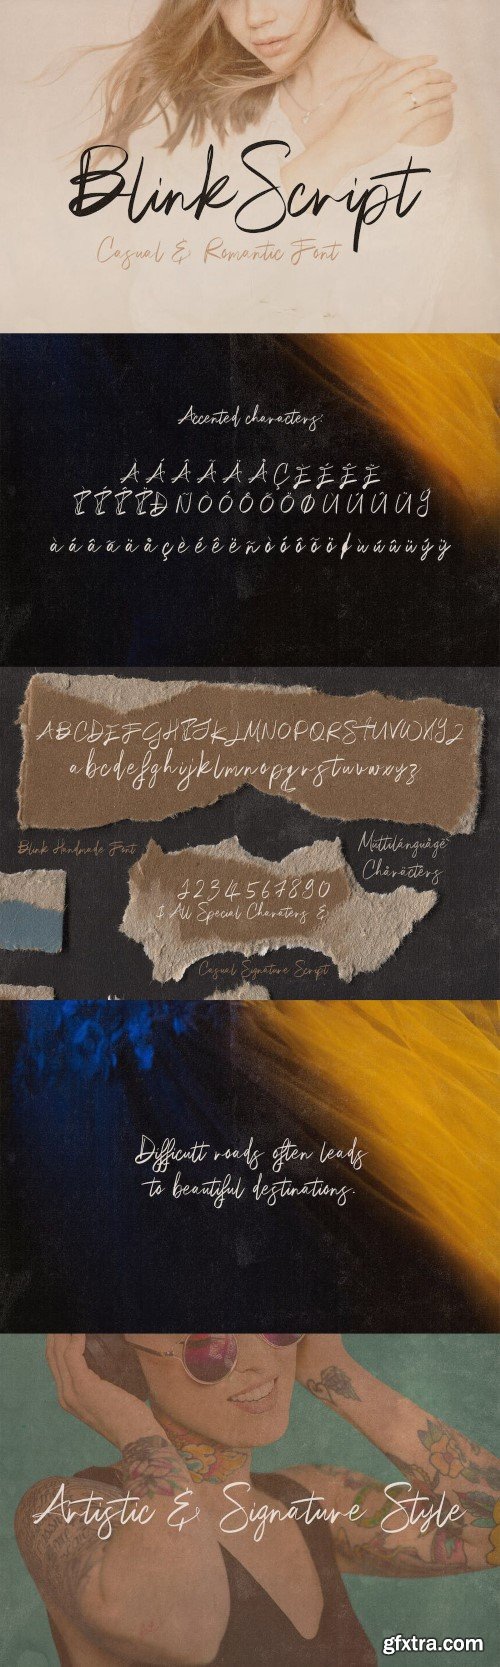 Blink Script
Casual & Romantic Font
Accented characters:
À Á Â Ã Ä Å Ç È É Ê Ë
Ì Í Î Ï Ð Ñ Ò Ó Ô Õ Ö Ø Ù Ú Û Ü Ý
à á â ã ä å ç è é ê ë ñ ò ó ô õ ö ø ù ú û ü ý ÿ
ABCDEFGHIJKLMNOPQRSTUVWXYZ
abcdefghijklmnopqrstuvwxyz
Blink Handmade Font
Múltilánguågè
Chåräctèrs
1234567890
$ All Special Charaters &
Casual Signature Script
Difficult roads often leads
to beautiful destinations.
Artistic & Signature Style
gfxtra.com